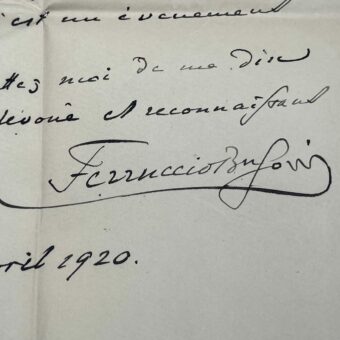 c'est un évènement
ttez moi de me dire
dévoué et reconnaissant
Ferruccio Busoni
vril 1920.